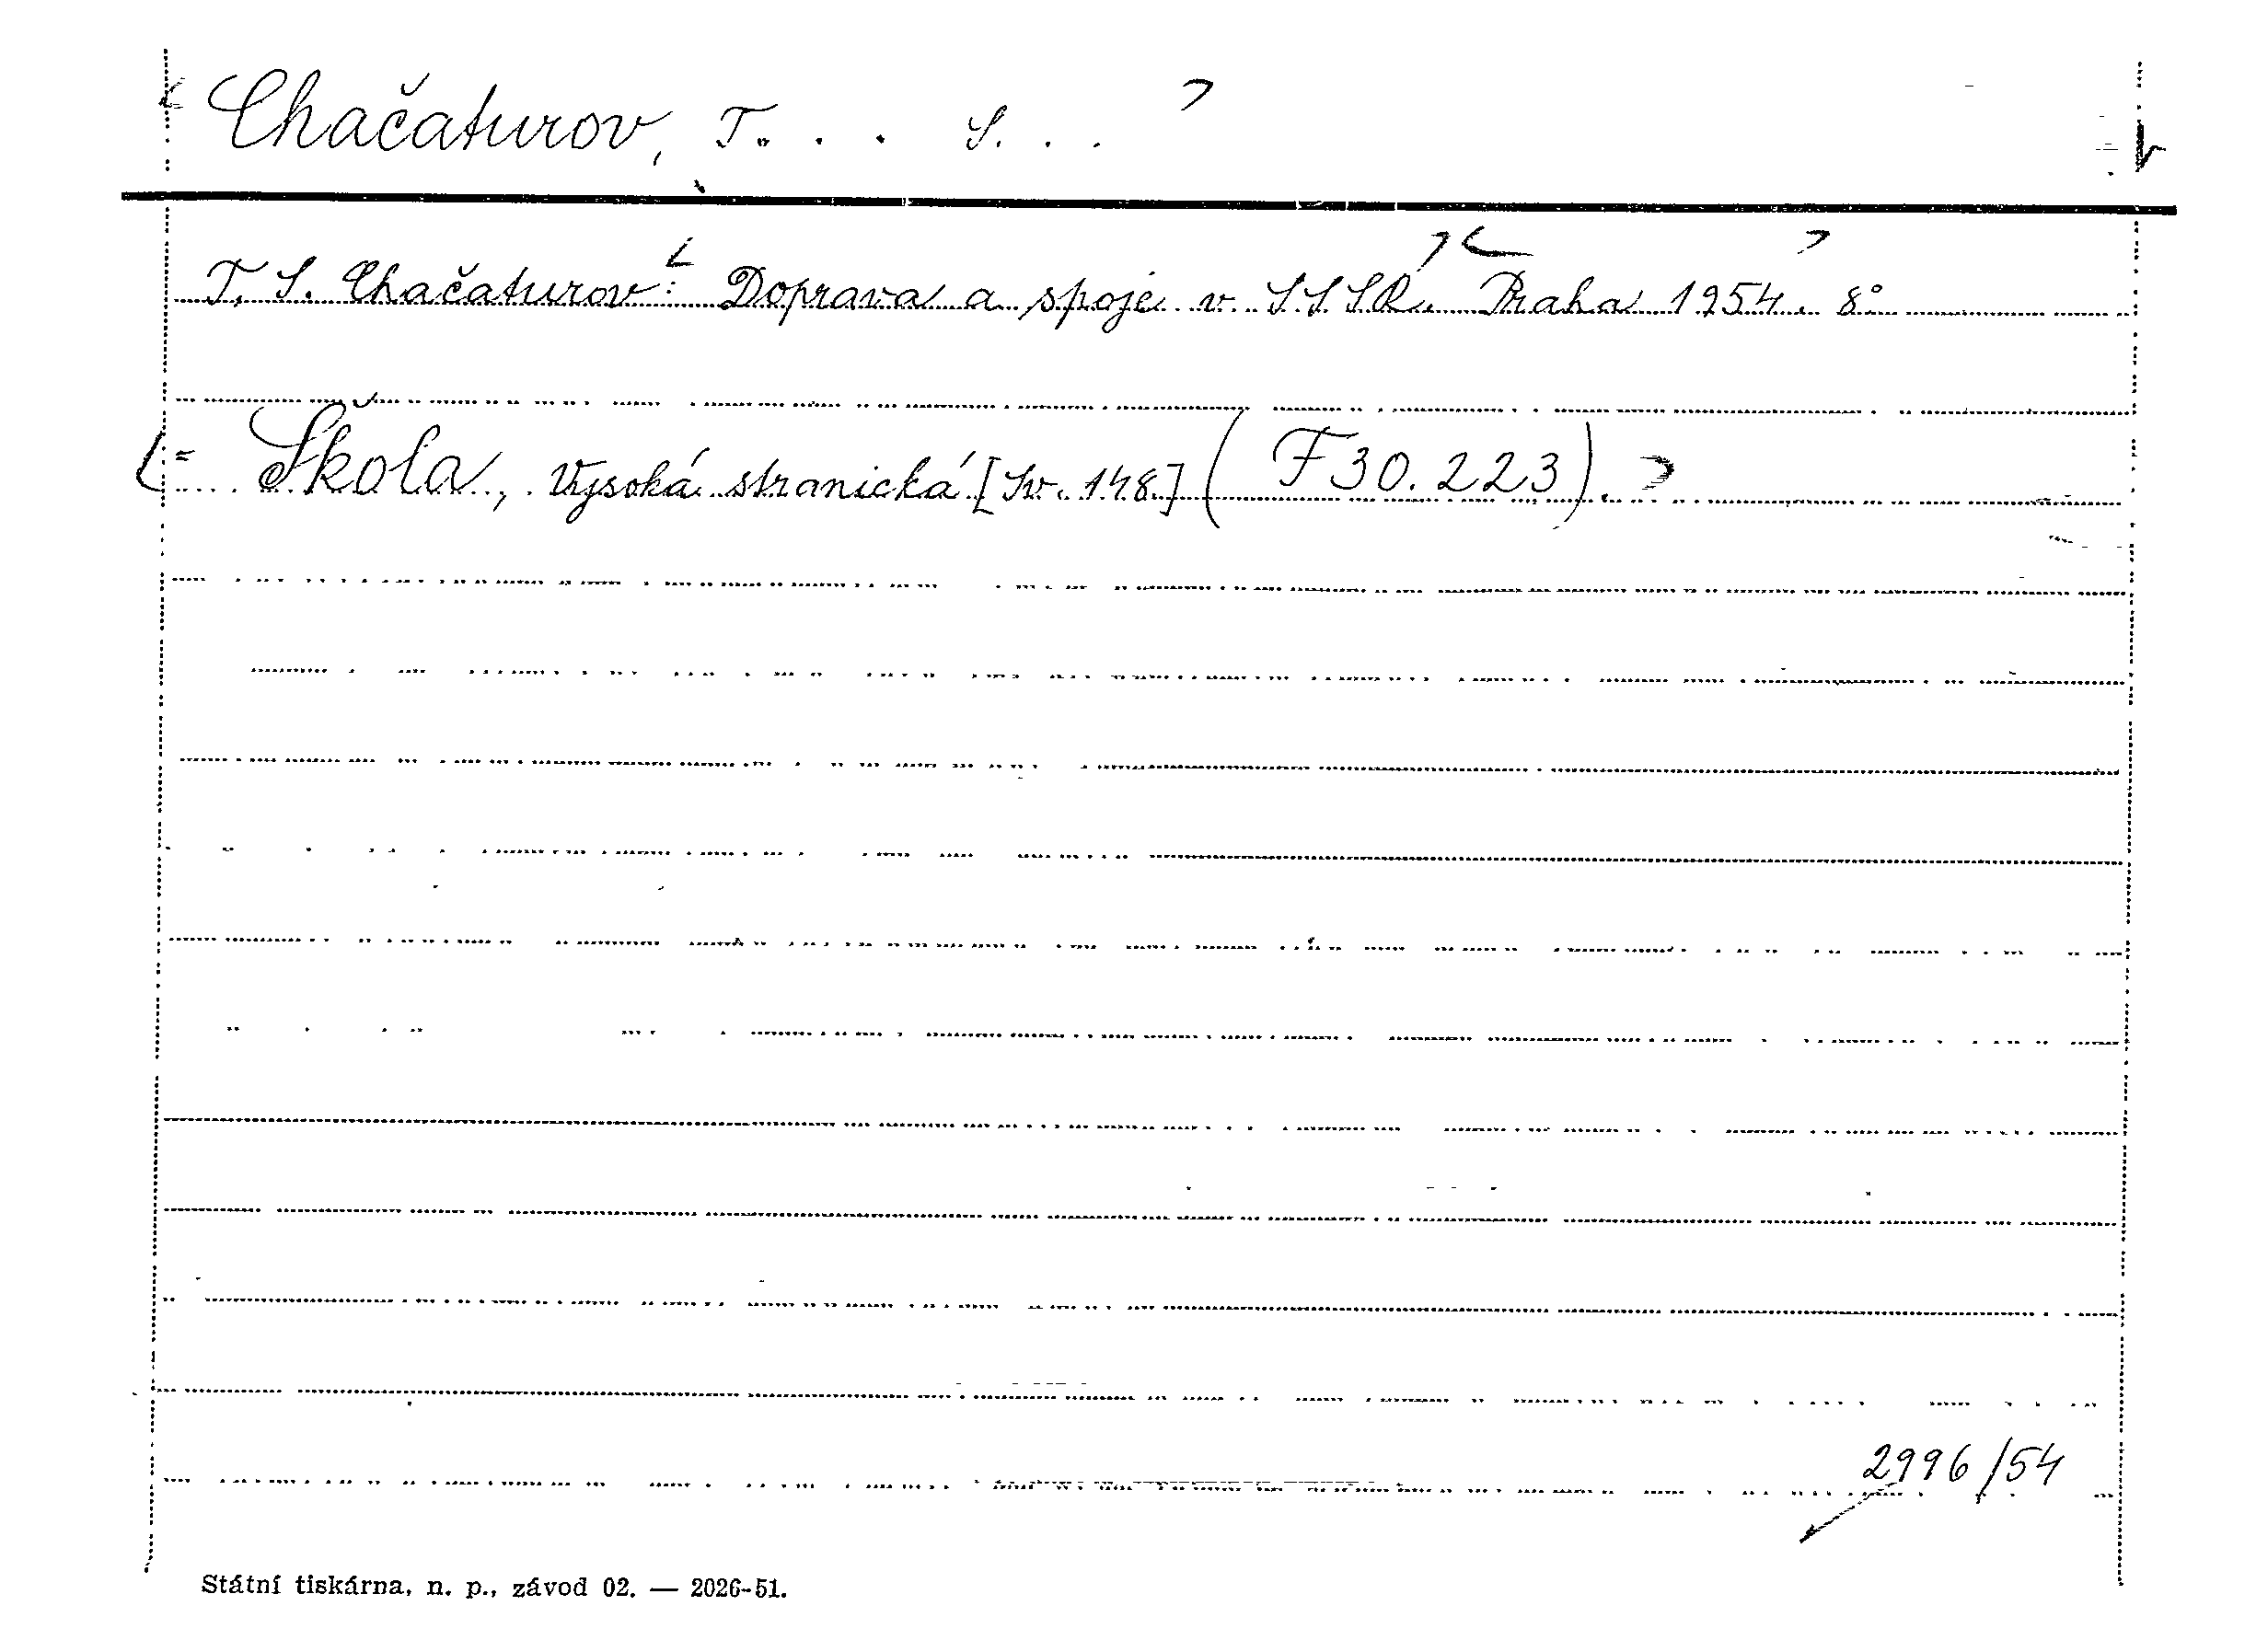 Chačaturov, T. . . S. . .
T. S. Chačaturov: Doprava a spoje v SSSR. Praha 1954. 8°
(= Škola, Vysoká stranická [Sv. 148] (F 30.223).
2996/54
Státní tiskárna, n. p., závod 02. — 2026-51.